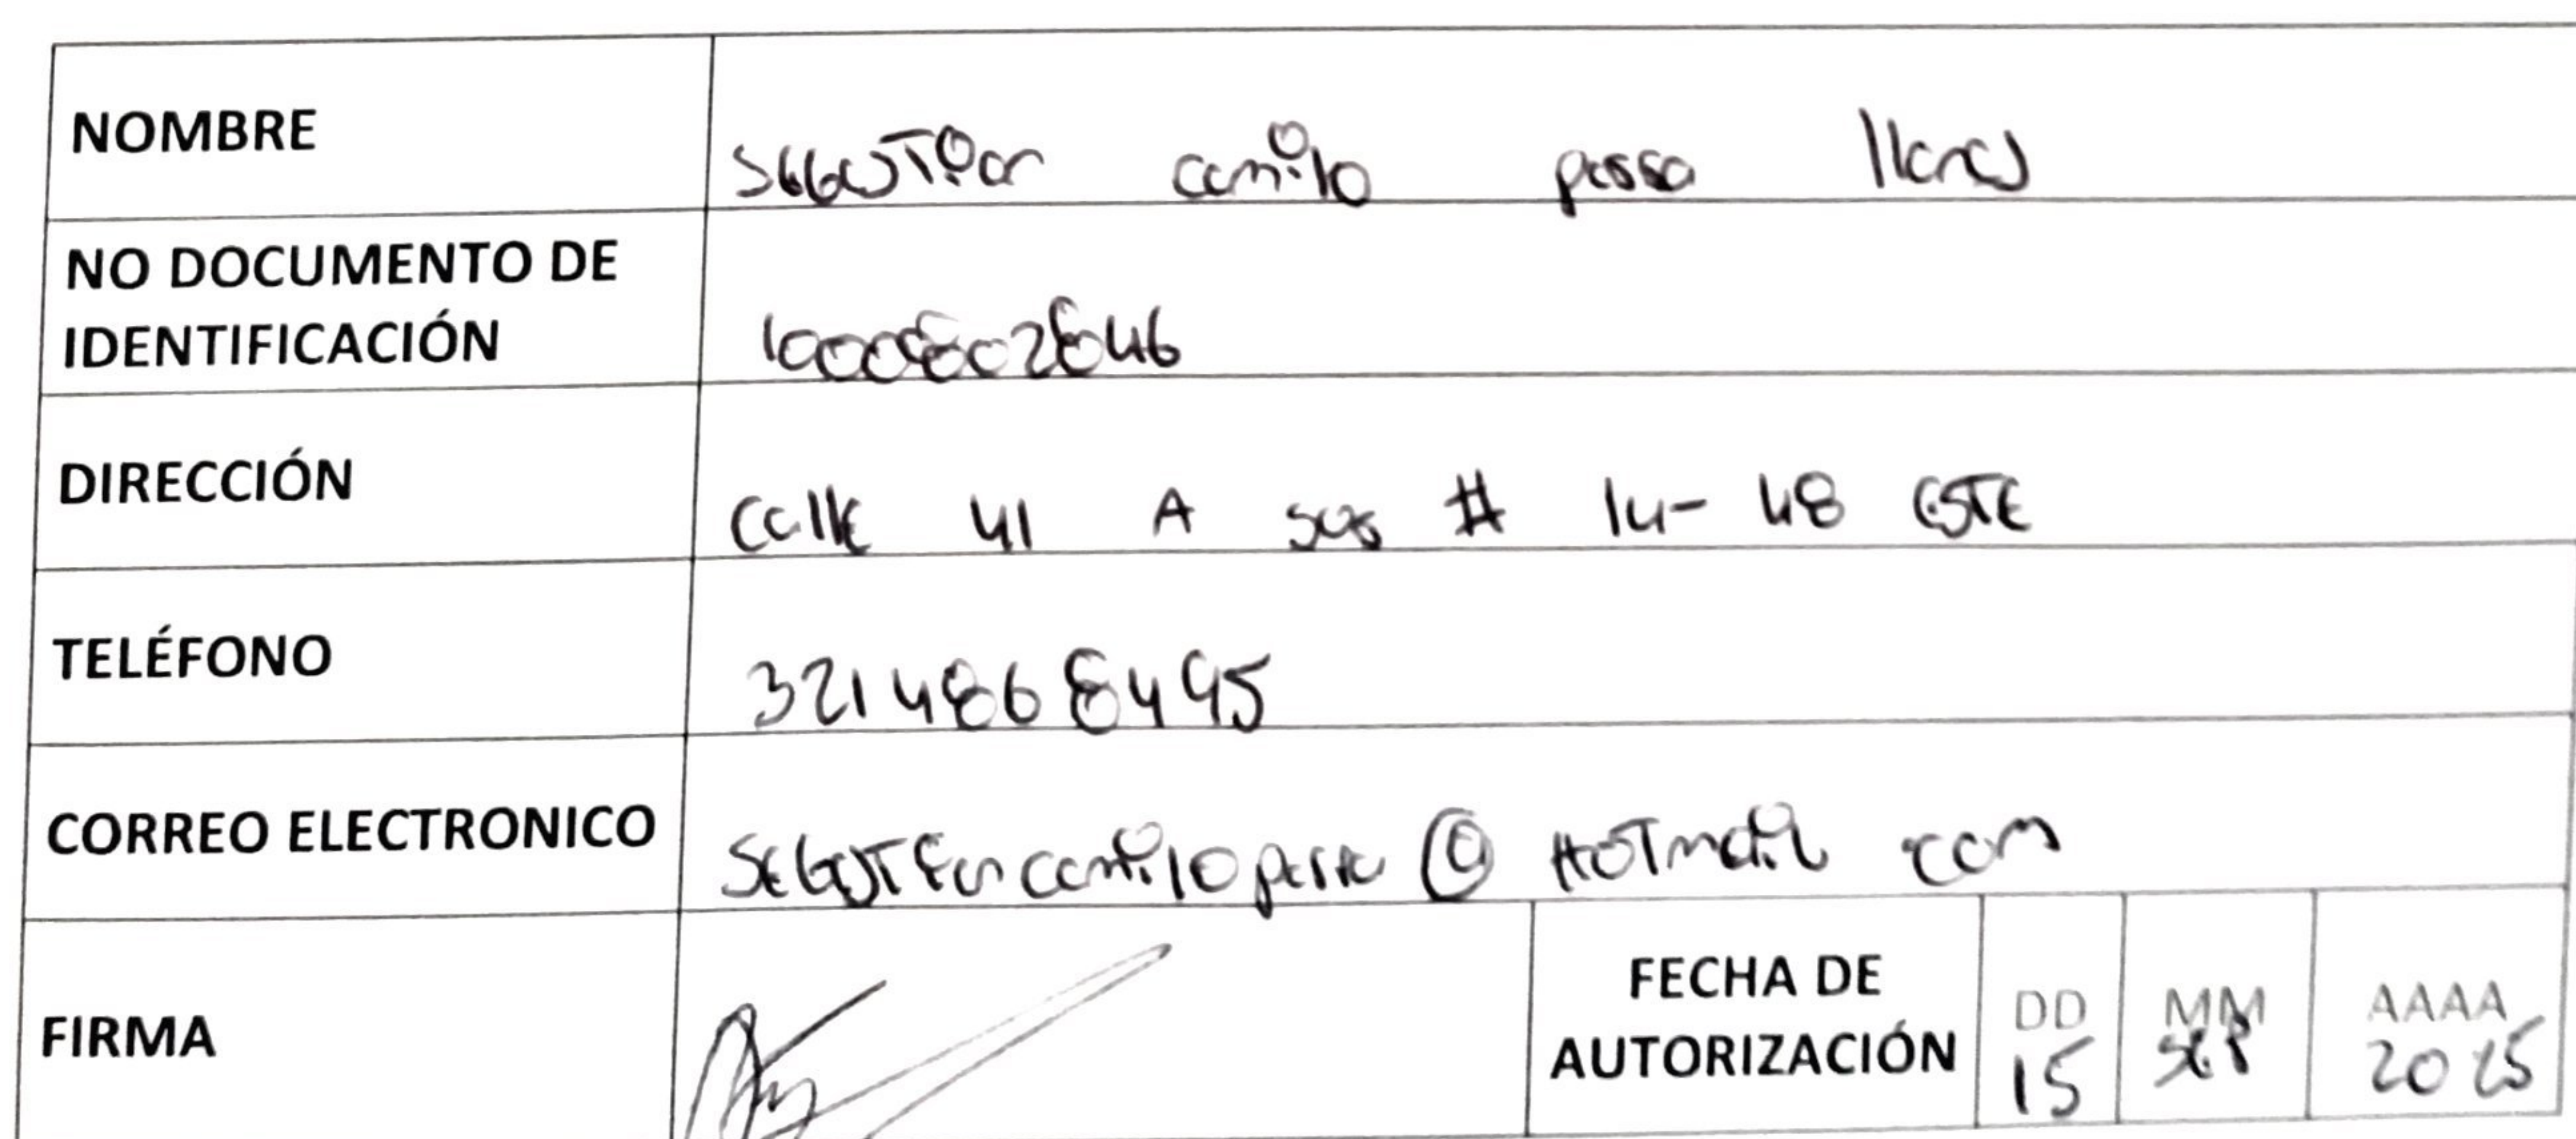 NOMBRE
Sebastian camilo possa llanos
NO DOCUMENTO DE
IDENTIFICACIÓN
1000802846
DIRECCIÓN
calle 41 A sur # 14- 48 ESTE
TELÉFONO
321 486 8495
CORREO ELECTRONICO
@ HOTmail com
FIRMA
FECHA DE
AUTORIZACIÓN
DD MM AAAA
15 SEP 2025